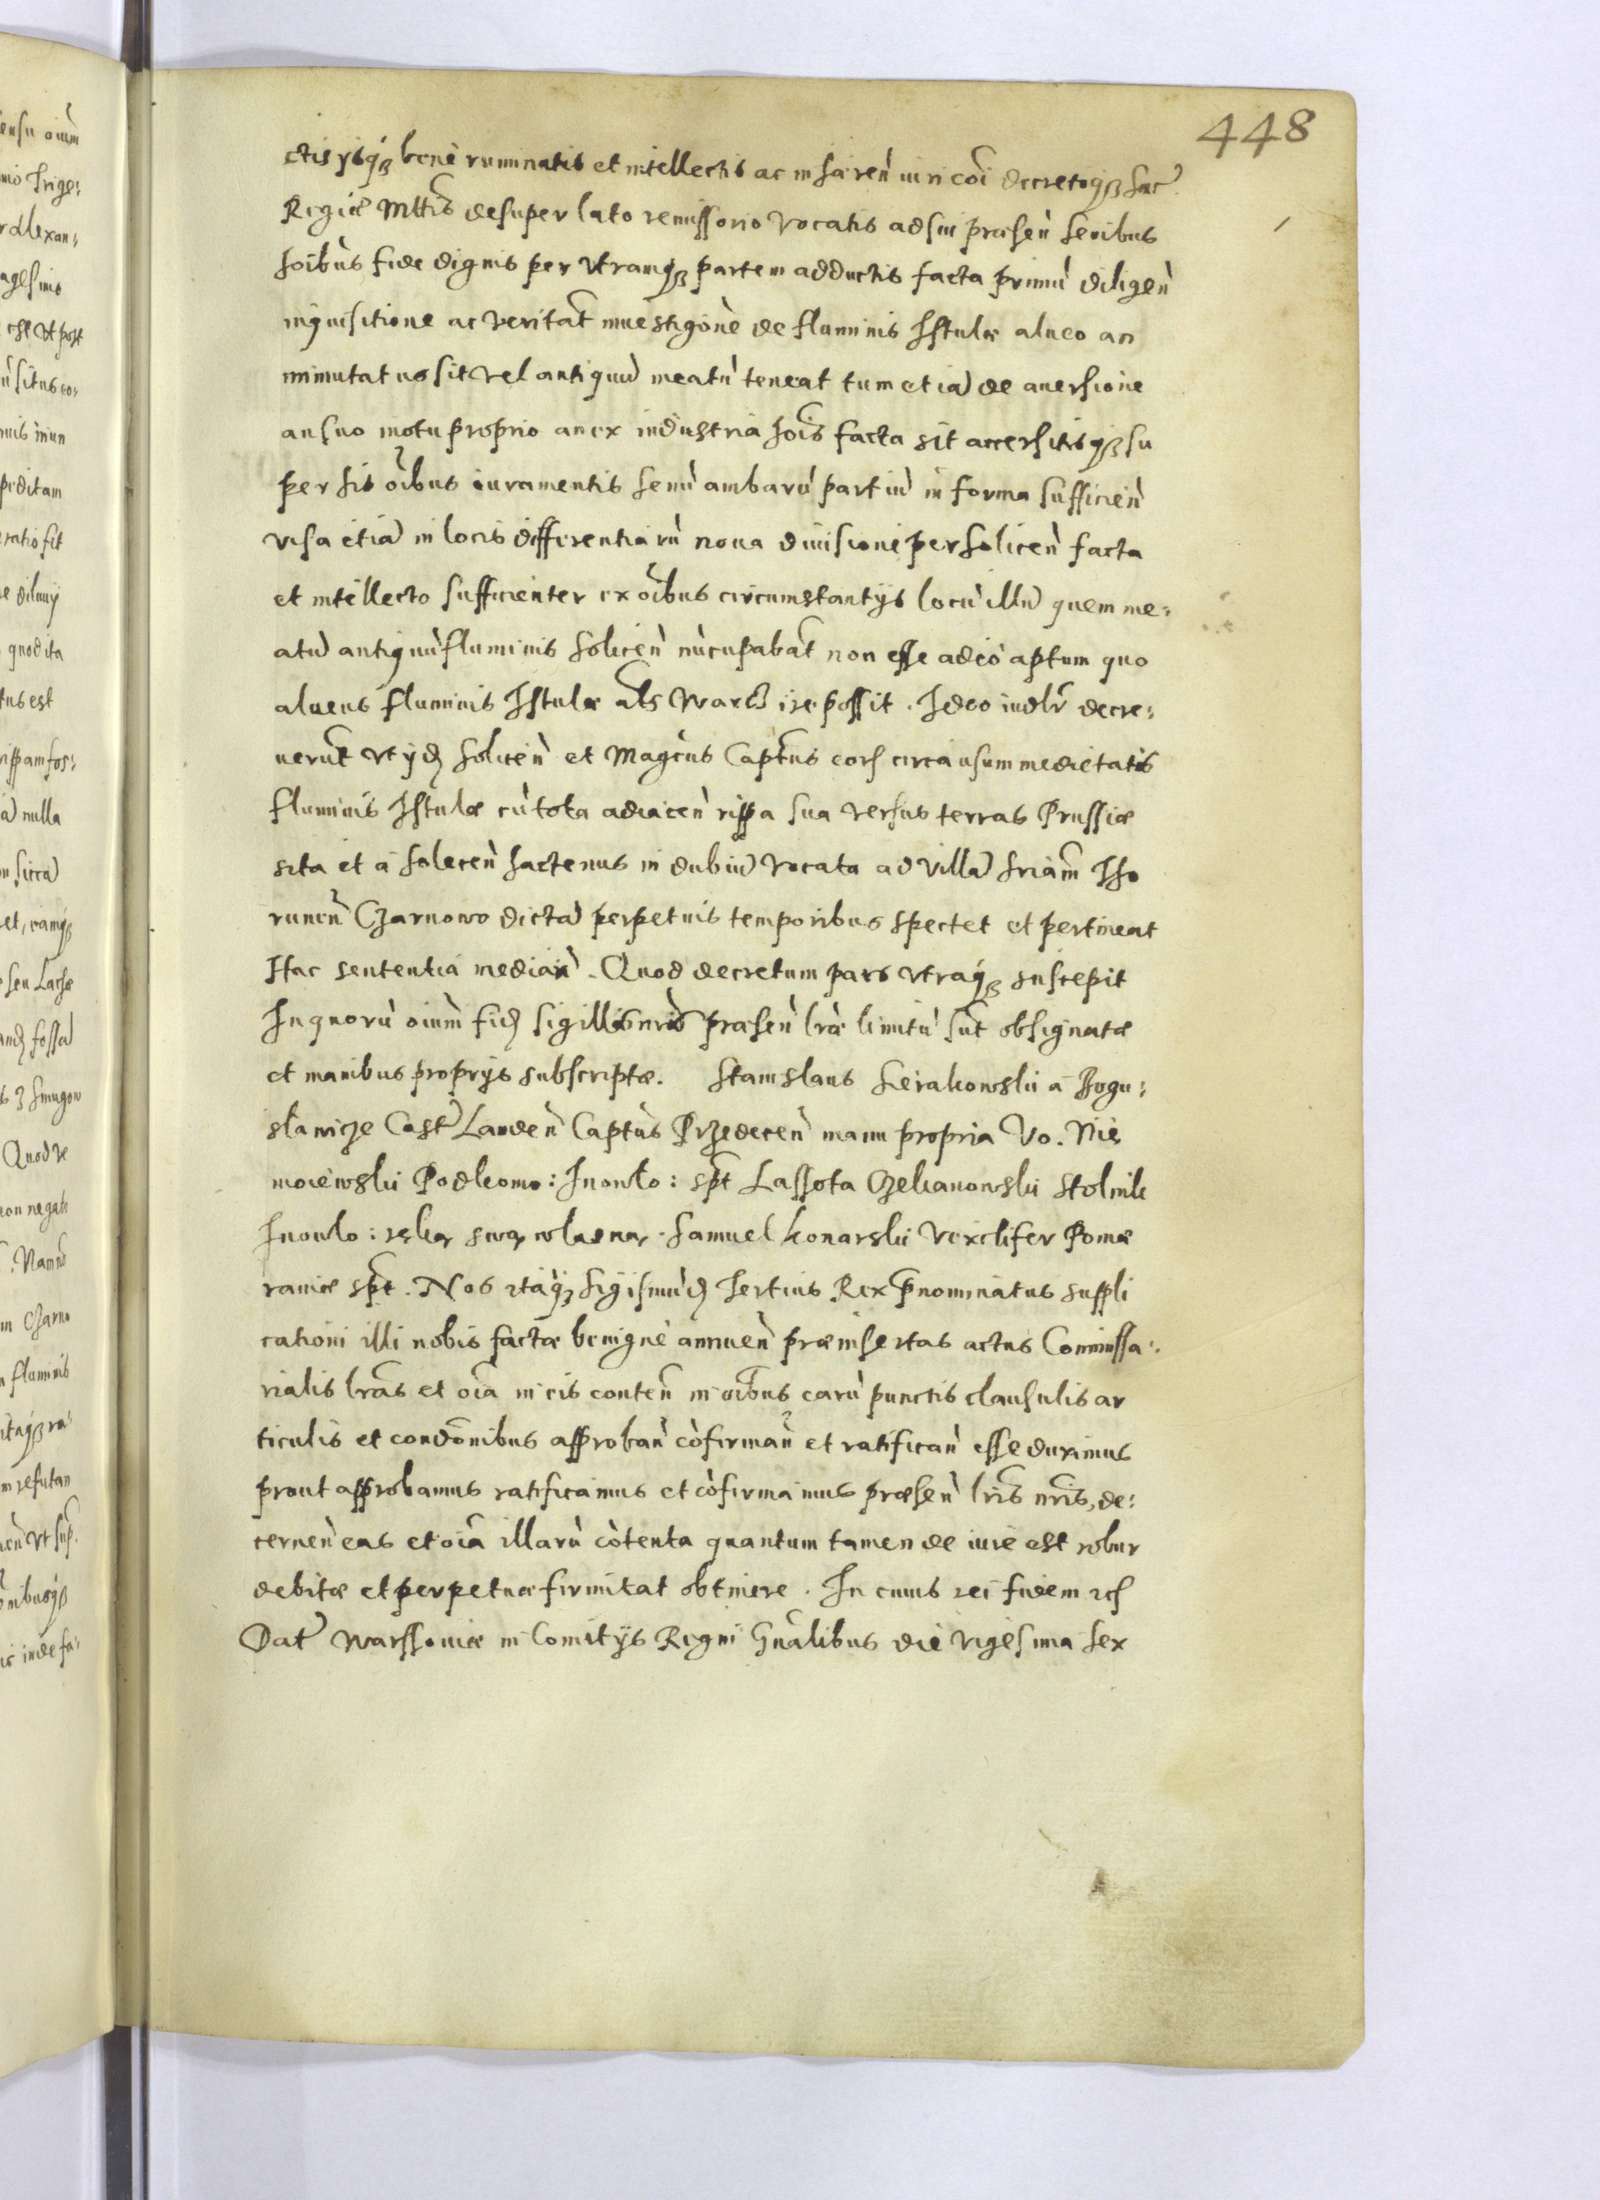 448
ctis ysqꝫ bene ruminatis et intellectis ac inhæren̄ iuri cōi decretoqꝫ Sac
Regiæ Mttis desuper lato remissorio vocatis ad sui præsen̄ senibus
hoībus fide dignis per vtramqꝫ partem adductis facta primū diligen̄
inquisitione ac veritat̄ inuestigōne de fluminis Istulæ alueo an
immutatus sit vel antiquū meatū teneat tum etiā de auersione
an suo motu proprio an ex industria hoīs facta sit accersitisqꝫ su
per his oībus iuramentis senū ambarū partiū in forma sufficien̄
visa etiā in locis differentiarū noua diuisione per Solicen̄ facta
et intellecto sufficienter ex oībus circumstantijs locū illū quem me:
atū antiquū fluminis Solicen̄ nūcupabāt non esse adeo aptum quo
alueus fluminis Istulæ als Warth ire possit. Ideo iudlr decre:
uerūt vt ijd Solicen̄ et Magcus Captus eorh circa usum medietatis
fluminis Istulæ cū tota adiacen̄ rippa sua versus terras Prussiæ
sita et a Solecen̄ hactenus in dubiū vocata ad villā hriām Tho
runen̄ Czarnowo dictā perpetuis temporibus spectet et pertineat
Hac sententia median̄. Quod decretum pars vtraqꝫ suscepit
In quorū oiūm fid sigillis nris præsen̄ lræ limitū sūt obsignatæ
et manibus proprijs subscriptæ. Stanislaus Sierakowski a Bogu:
slawicze Cast Landen̄ Captus Przedecen̄ manu propria Vo. Nie
moiewski Podkomo: Inowlo: spt Lassota Czekanowski Stolnik
Inowlo: ręką swą własną. Samuel Konarski Vexclifer Pomæ
raniæ spt. Nos itaqꝫ Sigismūd Tertius Rex p̄nominatus suppli
cationi illi nobis factæ benigne annuen̄ præinsertas actus Commissa:
rialis lras et oīa in eis conten̄ in oībus earū punctis clausulis ar
ticulis et condōnibus approban̄ cōfirman̄ et ratifican̄ esse duximus
prout approbamus ratificamus et cōfirmamus præsen̄ lris nris, de:
cernen̄ eas et oīa illarū cōtenta quantum tamen de iure est robur
debitæ et perpetuæ firmitat obtinere. In cuius rei fidem rch
Dat Warssouiæ in Comitijs Regni Gn̄alibus die vigesima sex